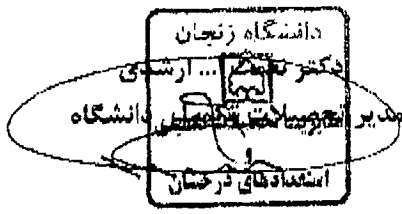 دانشگاه زنجان
دکتر نعمت ... ارشدی
مدیر تحصیلات تکمیلی دانشگاه
و
استعدادهای درخشان